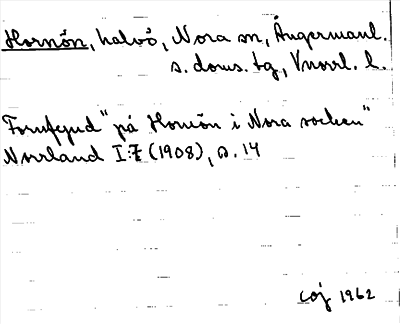 Hornön, halvö, Nora sn, Ångermanl.
s. doms. tg, Vnorrl. l.
Fornfynd "på Hornön i Nora socken"
Norrland I:7 (1908), s. 14
coj 1962